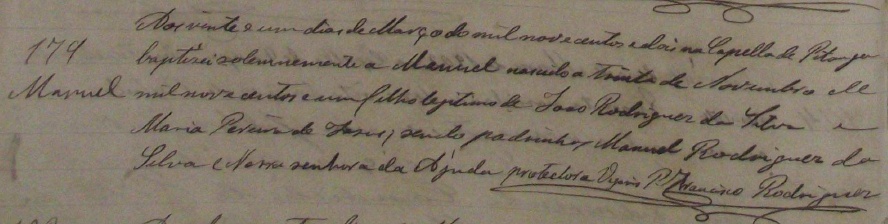 Aos vinte e um dias de Março de mil nove centos e dois na Capella de Pitanga
179 baptisei solemnemente a Manuel nascido a trinta de Novembro de
Manuel mil nove centos e um filho legitimo de João Rodrigues da Silva e
Maria Pereira de Jesus, sendo padrinhos Manuel Rodrigues da
Silva e Nossa senhora da Ajuda protectora P. Francisco Rodrigues